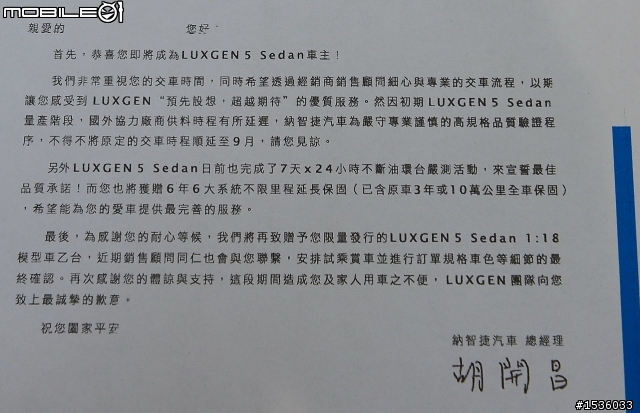 MOBILE01
親愛的 您好
首先，恭喜您即將成為LUXGEN5 Sedan車主！
我們非常重視您的交車時間，同時希望透過經銷商銷售顧問細心與專業的交車流程，以期
讓您感受到 LUXGEN "預先設想，超越期待" 的優質服務。然因初期LUXGEN5 Sedan
量產階段，國外協力廠商供料時程有所延遲，納智捷汽車為嚴守專業謹慎的高規格品質驗證程
序，不得不將原定的交車時程順延至9月，請您見諒。
另外LUXGEN5 Sedan日前也完成了7天x24小時不斷油環台嚴測活動，來宣誓最佳
品質承諾！而您也將獲贈6年6大系統不限里程延長保固（已含原車3年或10萬公里全車保固）
，希望能為您的愛車提供最完善的服務。
最後，為感謝您的耐心等候，我們將再致贈予您限量發行的LUXGEN5 Sedan 1:18
模型車乙台，近期銷售顧問同仁也會與您聯繫，安排試乘賞車並進行訂單規格車色等細節的最
終確認。再次感謝您的體諒與支持，這段期間造成您及家人用車之不便，LUXGEN團隊向您
致上最誠摯的歉意。
祝您闔家平安
納智捷汽車 總經理
胡開昌
#1536033